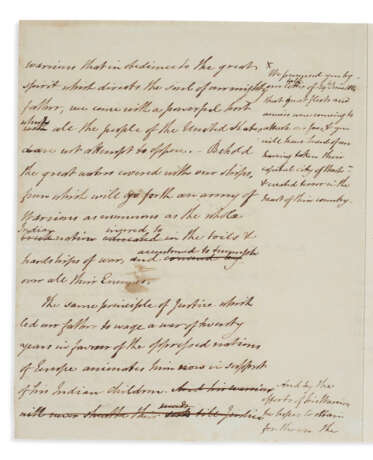 warriors that in obedience to the great
spirit which directs the soul of our mighty
father, we come with a powerful host
which all the people of the United States
dare not attempt to oppose. Behold
the great waters covered with our ships,
from which will go forth an army of
Warriors as numerous as the whole
Indian inured to
nation in the toils &
accustomed to triumph
hardships of war, and
over all their Enemies.
The same principle of Justice which
led our father to wage a war of twenty
years in favour of the oppressed nations
of Europe animates him now in support
of his Indian children. And his warriors
swords
will never sheathe their till Justice
x
We promised you by
our letter of
that great fleets and
armies were coming to
attack our foes; & you
will have heard of our
having taken their
capital city of
& in the
heart of their country.
And by the
efforts of his Warriors
he hopes to obtain
for them the